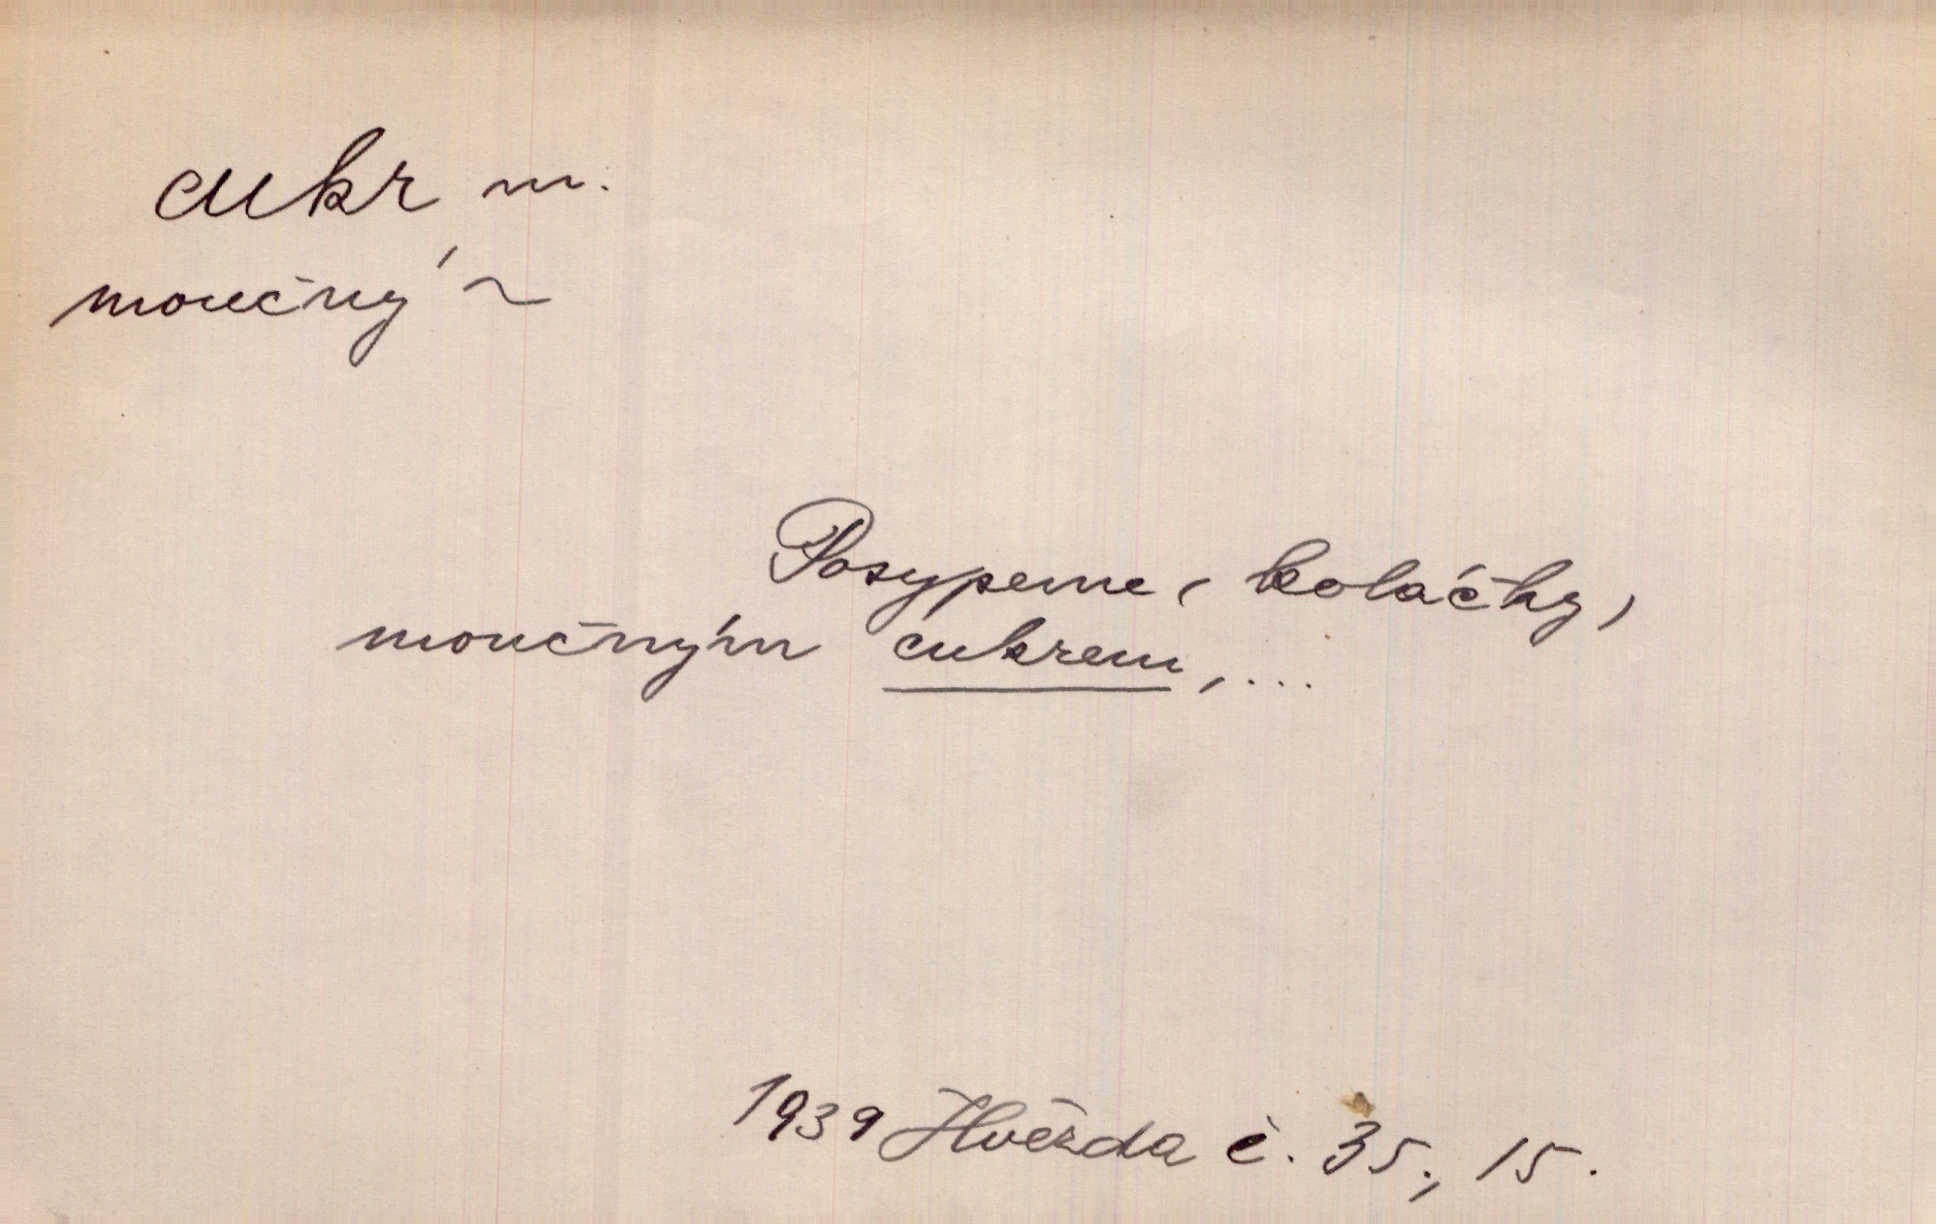 cukr m.
moučný ~
Posypeme (koláčky)
moučným cukrem, ...
1939 Hvězda č. 35., 15.